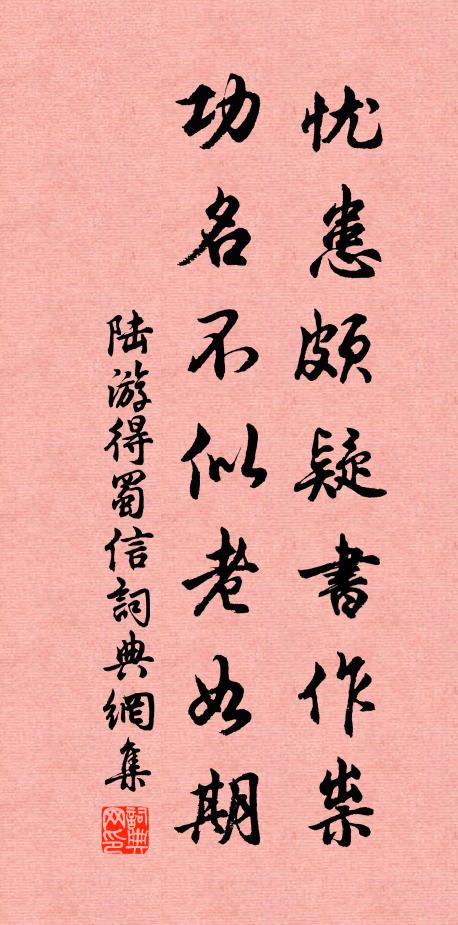 忧患颇疑書作祟
功名不似老如期
陆游得蜀信詞典網集
詞典网印